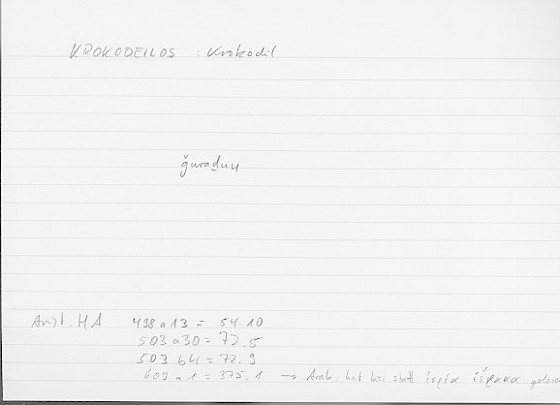 KROKODEILOS : Krokodil
ǧuraḏun
Arist. HA 498 a 13 = 54.10
503 a 30 = 72.5
503 b 4 = 72.9
609 a 1 = 375.1 → Arab. hat hier statt ἱέρακα